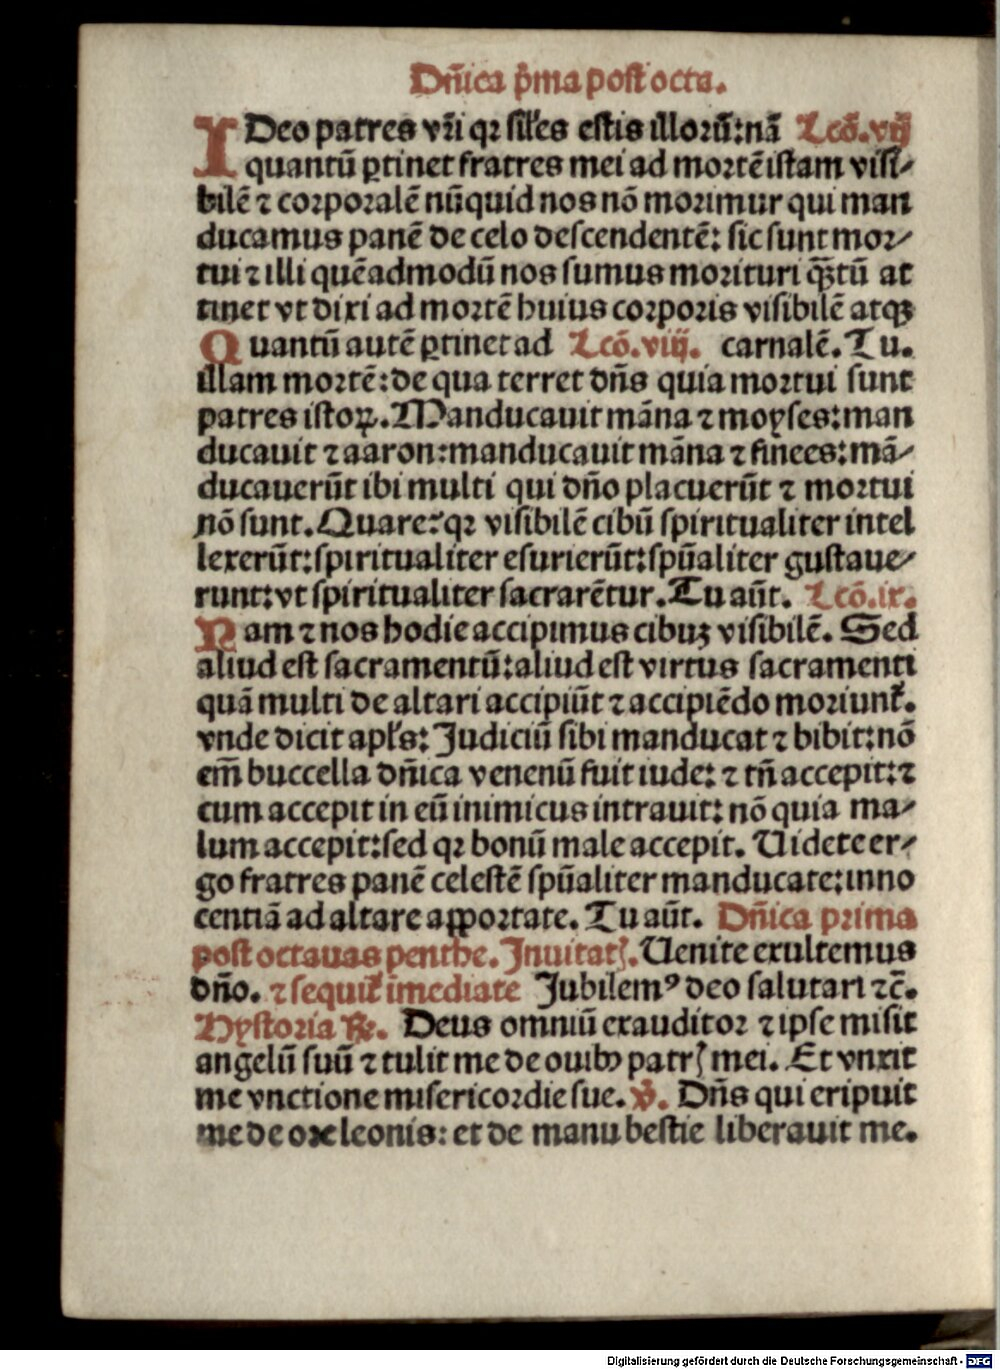 Dn̄ica p̄ma post octa.
IDeo patres vr̄i qꝛ siłes estis illoꝛū: nā Lcō. vij
quantū ꝑtinet fratres mei ad moꝛtē istam visi⸗
bilē ⁊ coꝛpoꝛalē nūquid nos nō moꝛimur qui man
ducamus panē de celo descendentē: sic sunt moꝛ⸗
tui ⁊ illi quēadmodū nos sumus moꝛituri qͣꝫtū at
tinet vt dixi ad moꝛtē huius coꝛpoꝛis visibilē atqꝫ
Quantū autē ꝑtinet ad Lcō. viij. carnalē. Tu.
illam moꝛtē: de qua terret dn̄s quia moꝛtui sunt
patres istoꝝ. Manducauit māna ⁊ moyses: man
ducauit ⁊ aaron: manducauit māna ⁊ finees: mā⸗
ducauerūt ibi multi qui dn̄o placuerūt ⁊ moꝛtui
nō sunt. Quare: qꝛ visibilē cibū spiritualiter intel
lexerūt: spiritualiter esurierūt: spūaliter gustaue⸗
runt: vt spiritualiter sacrarētur. Tu aūt. Lcō. ix.
Nam ⁊ nos hodie accipimus cibuꝫ visibilē. Sed
aliud est sacramentū: aliud est virtus sacramenti
quā multi de altari accipiūt ⁊ accipiēdo moꝛiunt᷑.
vnde dicit apłs: Judiciū sibi manducat ⁊ bibit: nō
em̄ buccella dn̄ica venenū fuit iude: ⁊ tn̄ accepit: ⁊
cum accepit in eū inimicus intrauit: nō quia ma⸗
lum accepit: sed qꝛ bonū male accepit. Uidete er⸗
go fratres panē celestē spūaliter manducate: inno
centiā ad altare appoꝛtate. Tu aūt. Dn̄ica prima
post octauas penthe. Inuitatꝭ. Uenite exultemus
dn̄o. ⁊ sequit᷑ īmediate Jubilemꝰ deo salutari ⁊c̄.
Hystoria ℟. Deus omniū exauditoꝛ ⁊ ipse misit
angelū suū ⁊ tulit me de ouibꝰ patrꝭ mei. Et vnxit
me vnctione misericoꝛdie sue. ℣. Dn̄s qui eripuit
me de oꝛe leonis: et de manu bestie liberauit me.
Digitalisierung gefördert durch die Deutsche Forschungsgemeinschaft - DFG